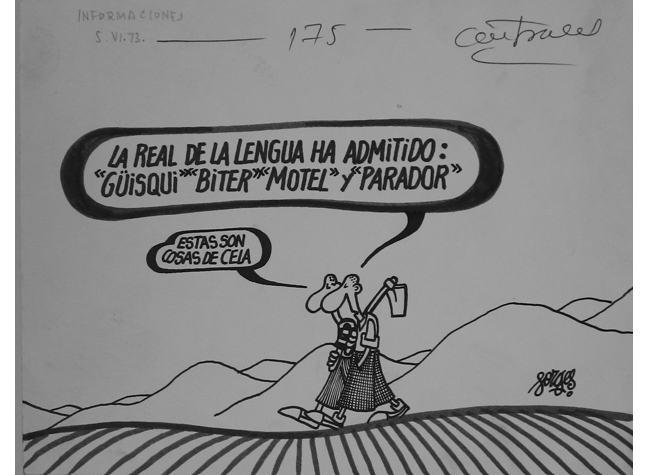 INFORMACIONES
5.VI.73. 175 Centrales
LA REAL DE LA LENGUA HA ADMITIDO:
"GÜISQUI" "BITER" "MOTEL" Y "PARADOR"
ESTAS SON
COSAS DE CELA
forges